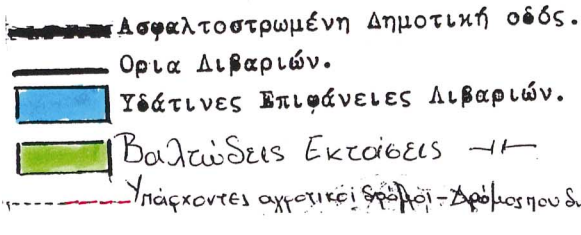 Ασφαλτοστρωμένη Δημοτική οδός.
Ορια Διβαριών.
Υδάτινες Επιφάνειες Διβαριών.
Βαλτώδεις Εκτάσεις
Υπάρχοντες αγροτικοί δρόμοι - Δρόμος που δι